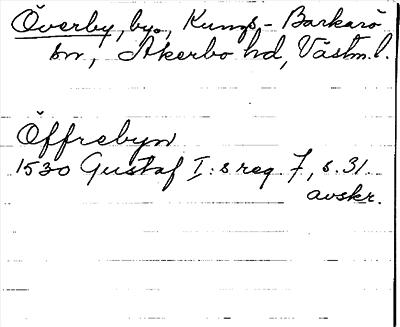 Överby, by, Kungs-Barkarö
sn, Åkerbo hd, Västm.l.
Öffrebyn
1530 Gustaf I:s reg 7, s. 31
avskr.